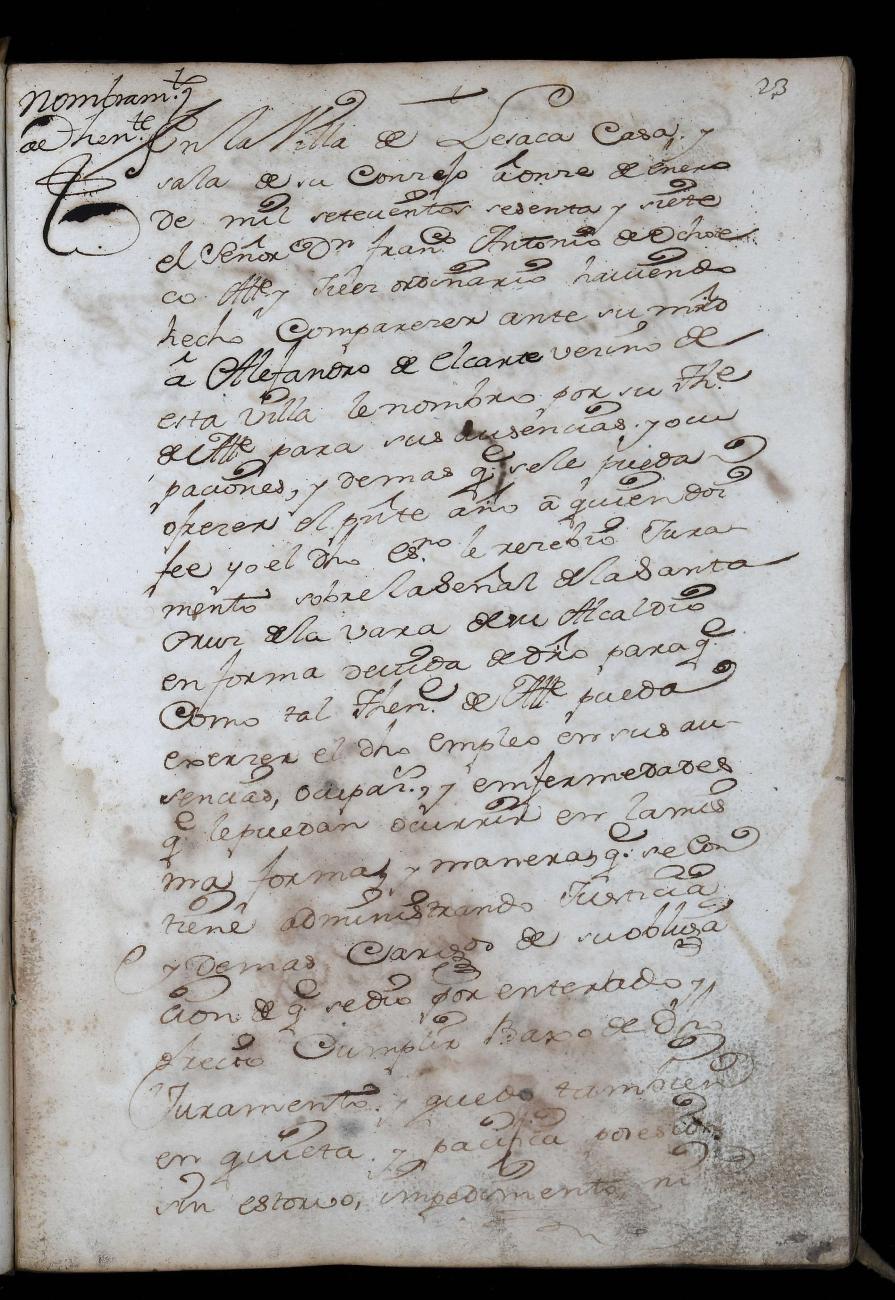 23
Nombram.to
de Then.te
En la Villa de Lesaca Casa, y
sala de su Conzejo a onze de Enero
de mil setecientos sesenta y siete
el Señor Dn fran.co Antonio de Echeve
co Alle y Juez ordinario haviendo
hecho Comparezer ante su mrd
â Alejandro de Elcarte vezino de
esta Villa le nombro por su The
de Alle para sus ausencias y ocu
paciones, y demas q.e se le pueda
ofrezer el pnte año â quien doi
fee yo el dho es.no le rezebio Jura
mento sobre la Señal de la Santa
Cruz de la vara de su Alcaldio
en forma devida de dro para q.e
Como tal Then.e de Alle pueda
exerzer el dho empleo en sus au-
sencias, ocupa.s, y enfermedades
q.e le puedan ocurrir en la mis
ma forma, y manera, q.e se Con
tiene administrando Justicia
y demas Cargos de su obliga
cion de q.e se dio por enterado y
ofrecio Cumplir Baxo de dho
Juramento, y quedo tambien
en quieta y pacifica posesion
sin estorvo, impedimento, ni